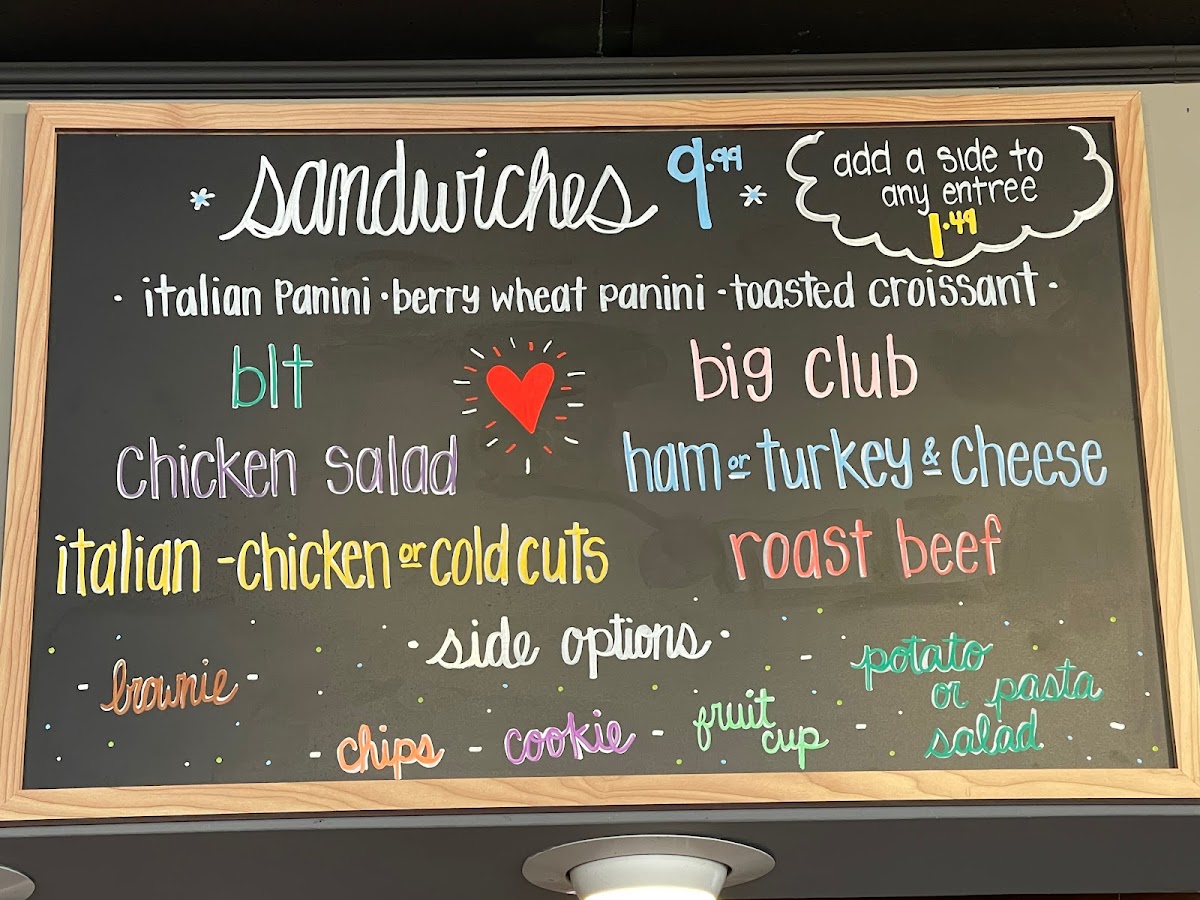 * sandwiches 9.99 *
add a side to
any entree
1.49
· italian panini · berry wheat panini · toasted croissant ·
blt
big club
chicken salad
ham or turkey & cheese
italian - chicken or cold cuts
roast beef
· side options ·
- brownie -
potato
or pasta
salad
- chips - cookie - fruit
cup -